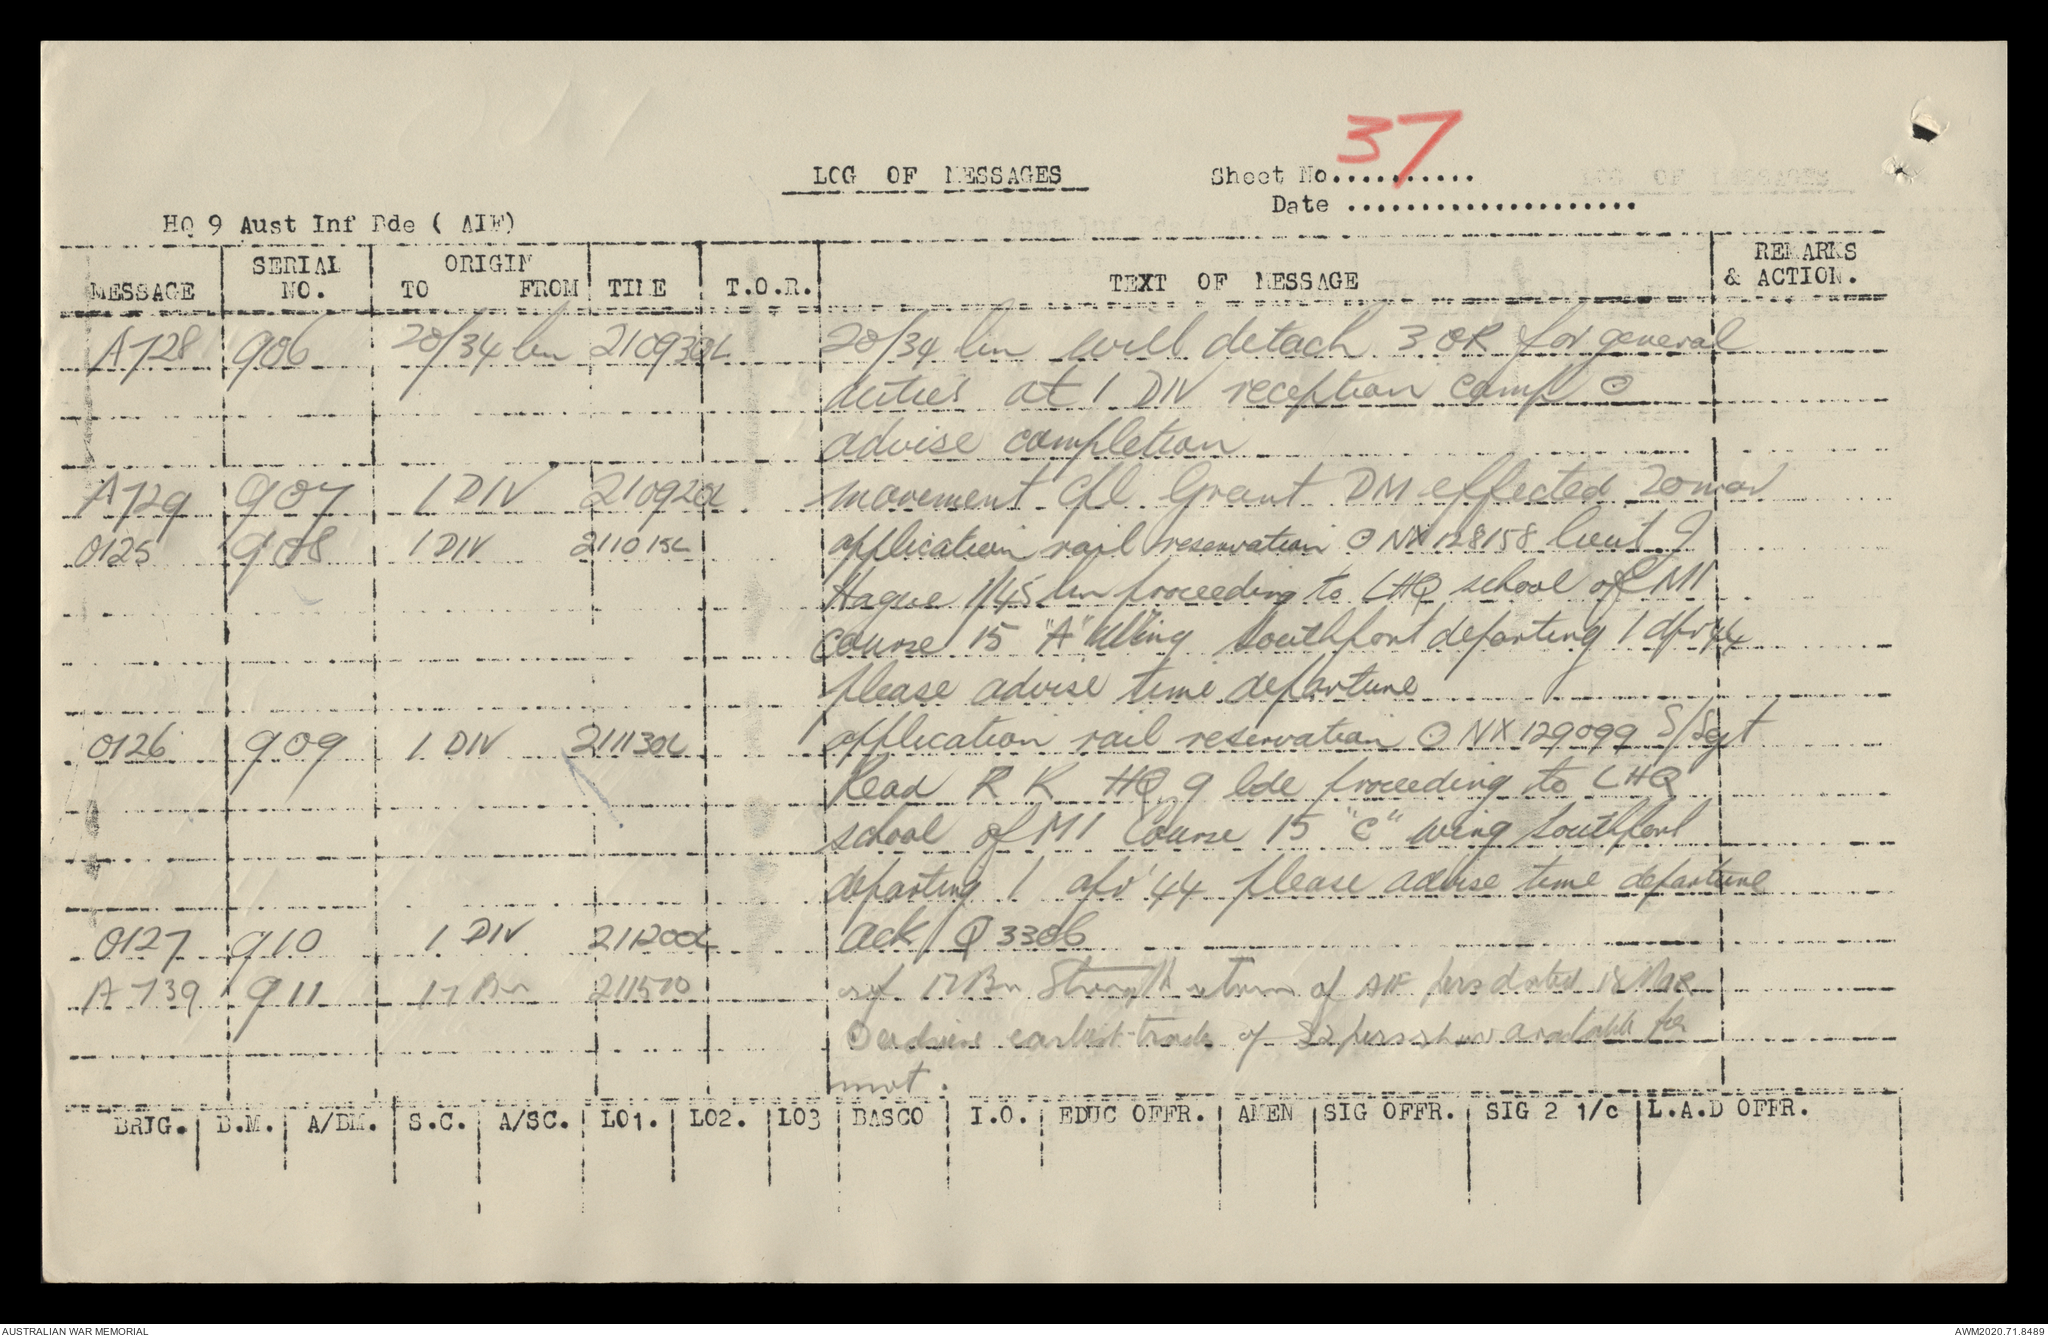 37
LOG OF MESSAGES Sheet No..........
Date ....................
HQ 9 Aust Inf Bde ( AIF)
MESSAGE SERIAL NO. ORIGIN TO FROM TIME T.O.R. TEXT OF MESSAGE REMARKS & ACTION.
A728 906 20/34 bn 210930L 20/34 bn will detach 3 OR for general
duties at 1 DIV reception camp ⊙
advise completion
A729 907 1 DIV 210920L movement Cpl Grant DM effected 20 mar
O125 908 1 DIV 211015L application rail reservation ⊙ NX128158 lieut J
Hague 1/45 bn proceeding to LHQ school of MI
course 15 "A" Wing Southport departing 1 apr 44
please advise time departure
O126 909 1 DIV 211130L application rail reservation ⊙ NX129099 S/Sgt
Read R K HQ 9 bde proceeding to LHQ
school of MI Course 15 "C" wing Southport
departing 1 apr '44 please advise time departure
O127 910 1 DIV 211200L ack Q 3306
A739 911 17 Bn 211510 ref 17 Bn Strength return of AIF pers dated 18 MAR
earliest trade of 32 pers shown available for
mvt.
BRIG. B.M. A/BM. S.C. A/SC. LO1. LO2. LO3 BASCO I.O. EDUC OFFR. AMEN SIG OFFR. SIG 2 1/c L.A.D OFFR.
AUSTRALIAN WAR MEMORIAL AWM2020.71.8489